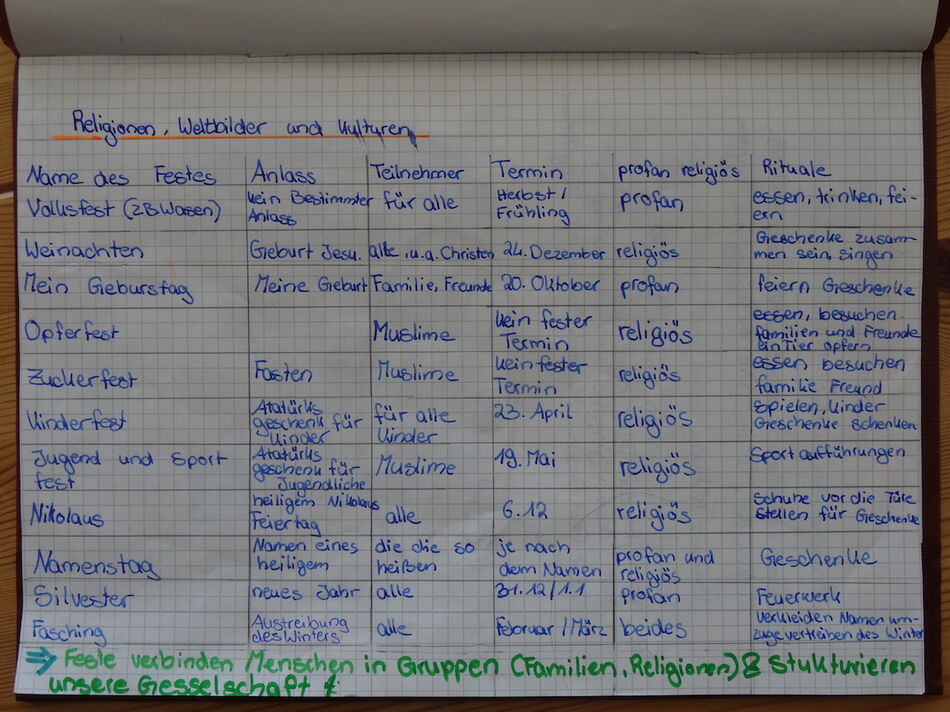 Religionen, Weltbilder und Kulturen
Name des Festes Anlass Teilnehmer Termin profan religiös Rituale
Volksfest (zB Wasen) kein Bestimmter für alle Herbst / profan essen, trinken, fei-
Anlass Frühling ern
Weinachten Geburt Jesu. alle, u.a. Christen 24. Dezember religiös Geschenke zusam-
men sein, singen
Mein Geburstag Meine Geburt Familie, Freunde 20. Oktober profan feiern Geschenke
Opferfest Muslime kein fester religiös essen, besuchen.
Termin familien und Freunde
ein Tier opfern
Zuckerfest Fasten Muslime kein fester religiös essen besuchen
Termin familie Freund
Kinderfest Atatürks für alle 23. April religiös spielen, Kinder
geschenk für Kinder Geschenke schenken
Kinder
Jugend und Sport Atatürks Muslime 19. Mai religiös Sport aufführungen
fest geschenk für
Jugendliche
Nikolaus heiligem Nikolaus alle 6.12 religiös Schuhe vor die Türe
Feiertag stellen für Geschenke
Namenstag Namen eines die die so je nach profan und Geschenke
heiligem heißen dem Namen religiös
Silvester neues Jahr alle 31.12/1.1 profan Feuerwerk
Fasching Austreibung alle Februar / März beides verkleiden Namen um-
des Winters zuge vertreiben des Winter
⇒ Feste verbinden Menschen in Gruppen (Familien, Religionen) & Stukturieren
unsere Gesselschaft